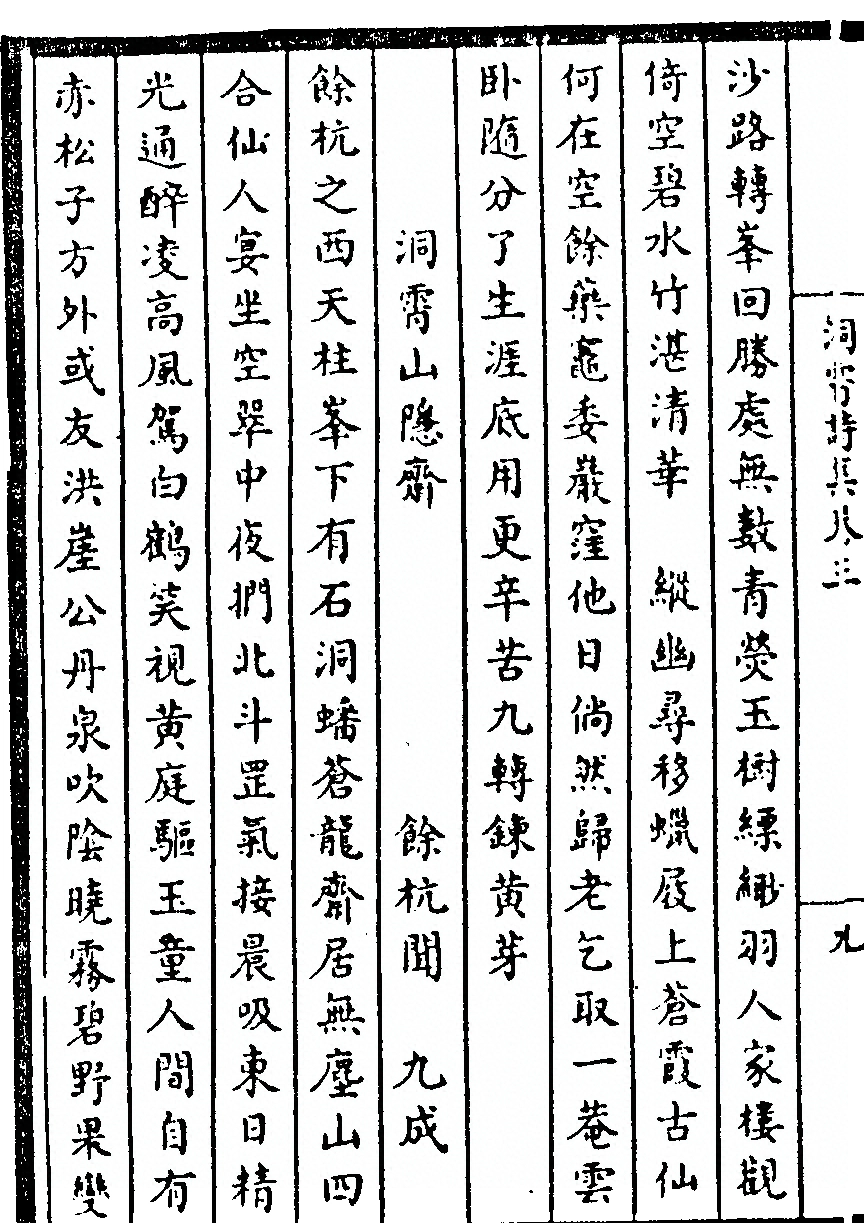 洞霄詩集八 三
九
沙路轉峯回勝處無數青熒玉樹縹緲羽人家樓觀
倚空碧水竹湛清華　縱幽尋移蠟屐上蒼霞古仙
何在空餘藥竈委巖窪他日倘然歸老乞取一菴雲
卧隨分了生涯底用更辛苦九轉鍊黄芽
洞霄山隱齋　餘杭聞　九成
餘杭之西天柱峯下有石洞蟠蒼龍齋居無塵山四
合仙人宴坐空翠中夜捫北斗罡氣接晨吸東日精
光通醉凌高風駕白鶴笑視黄庭驅玉童人間自有
赤松子方外或友洪崖公丹泉吹陰曉霧碧野果變